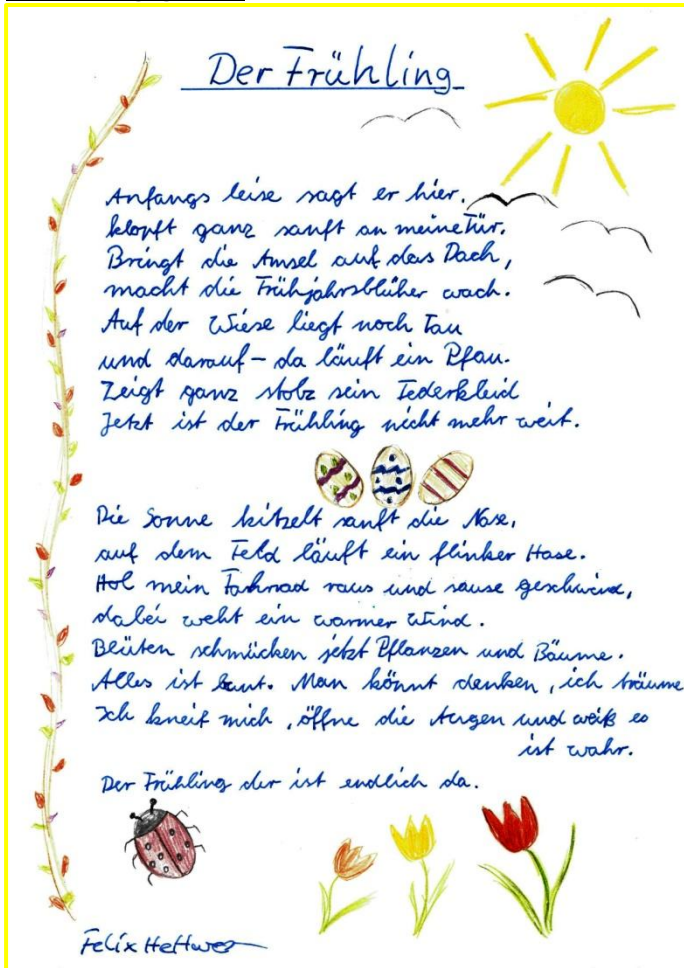 Der Frühling
Anfangs leise sagt er hier,
klopft ganz sanft an meine Tür.
Bringt die Amsel auf das Dach,
macht die Frühjahrsblüher wach.
Auf der Wiese liegt noch Tau
und darauf – da läuft ein Pfau.
Zeigt ganz stolz sein Federkleid
Jetzt ist der Frühling nicht mehr weit.
Die Sonne kitzelt sanft die Nase,
auf dem Feld läuft ein flinker Hase.
Hol mein Fahrrad raus und sause geschwind,
dabei weht ein warmer Wind.
Blüten schmücken jetzt Pflanzen und Bäume.
Alles ist bunt. Man könnt denken, ich träume
Ich kneif mich, öffne die Augen und weiß es
ist wahr.
Der Frühling der ist endlich da.
Felix Hettwer